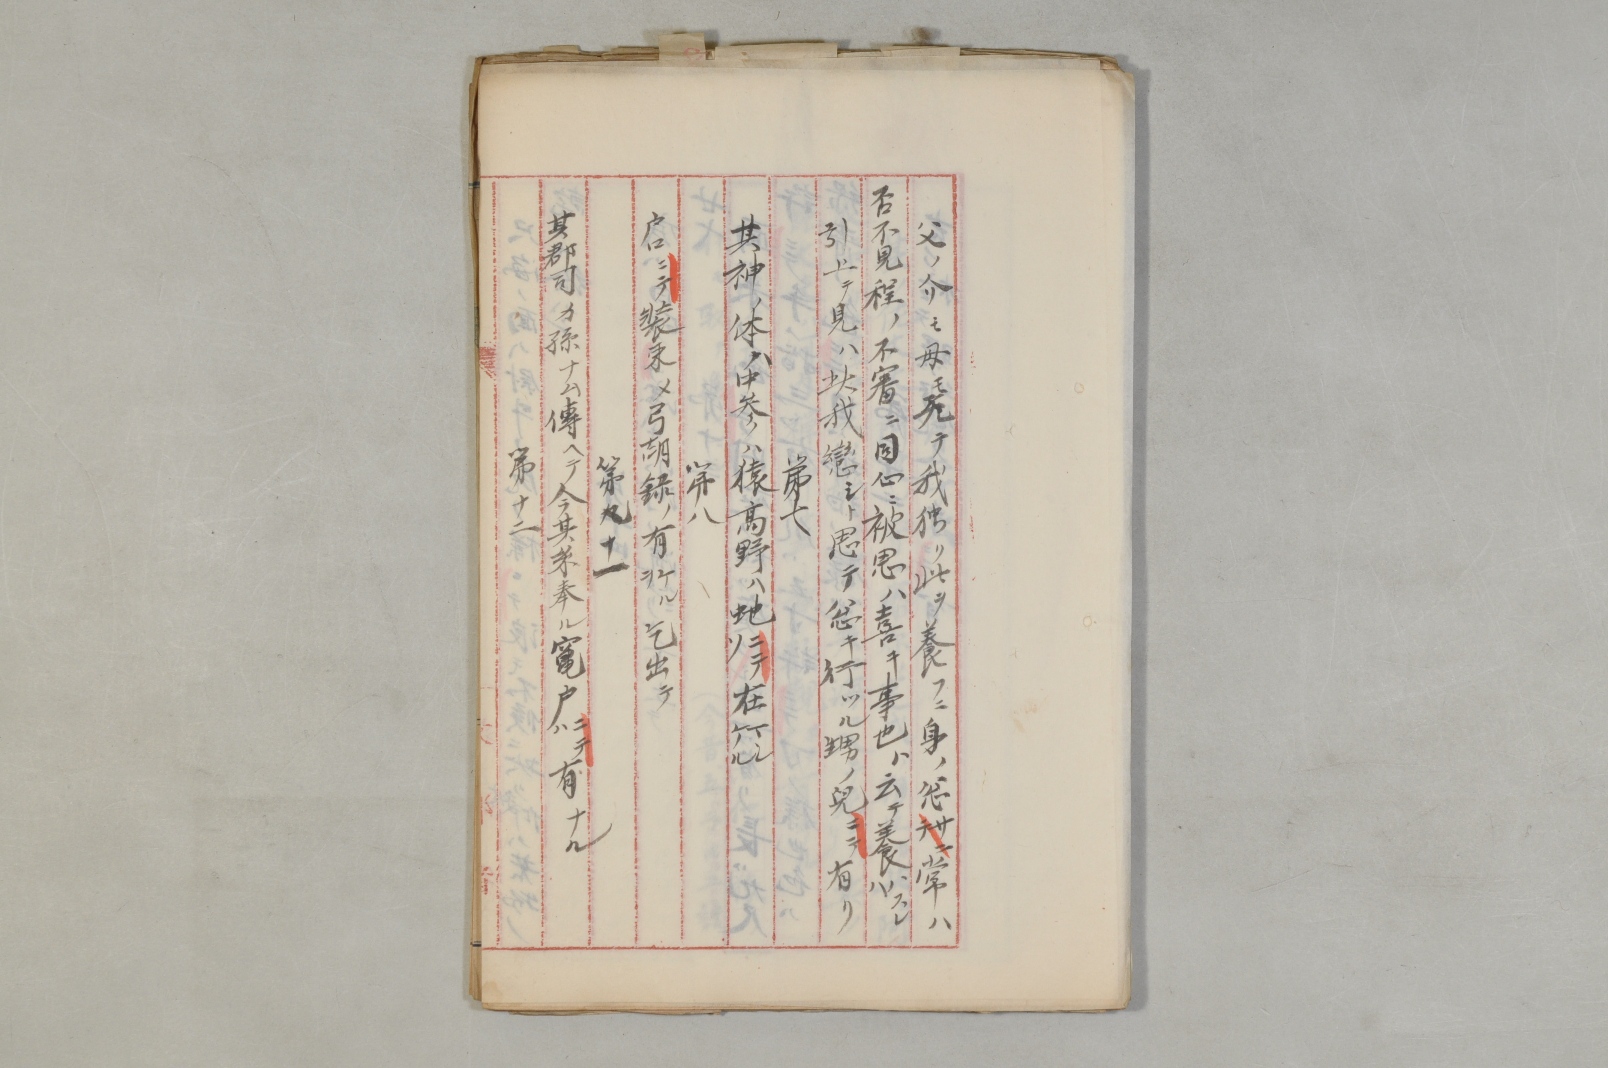 父ノ介モ母モ死テ我独リ此ヲ養フニ身ノ怱サニテ常ハ
否不見程ノ不審ニ同心ニ被思ハ喜キ事也ト云テ養ハスレバ
引上テ見ハ此我戀シト思テ怱キ行ツル甥ノ兒ニテ有リ
第七
其神ノ体ハ中参ハ猿高野ハ蛇ニテソ在ケル
第八
君ニテ装束メ弓胡録ノ有ケル乞出テ
第九十一
其郡司カ孫ナム傳ヘテ今其米奉ル竃戸ハニテ有ナル
第十二